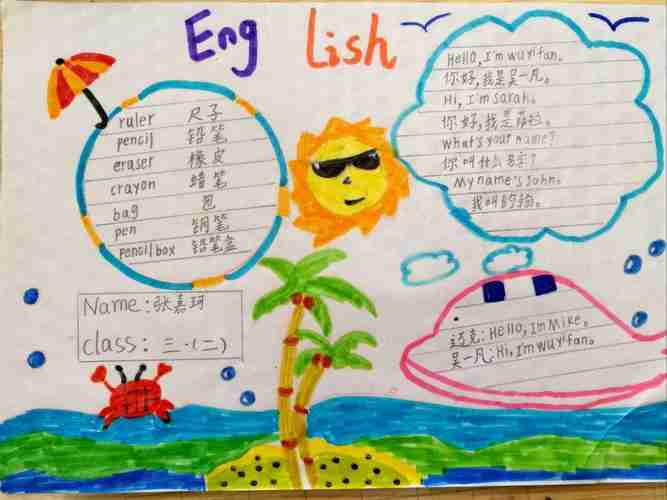 Eng Lish
ruler 尺子
pencil 铅笔
eraser 橡皮
crayon 蜡笔
bag 包
pen 钢笔
pencilbox 铅笔盒
Hello, I'm wuyifan。
你好,我是吴一凡。
Hi, I'm sarah。
你好,我是萨拉。
what's your name?
你叫什么名字?
My name's John。
我叫约翰。
Name:张嘉珂
class:三·(二)
迈克:Hello, I'm Mike。
吴一凡:Hi, I'm wuyifan。